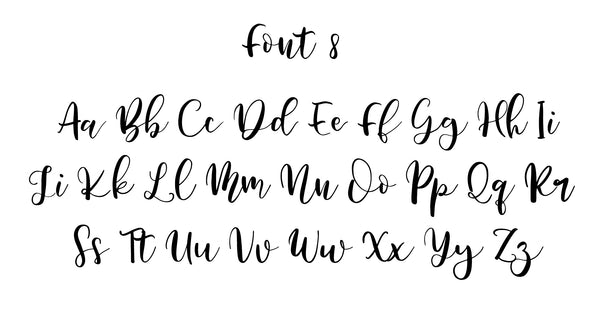 Font 8
Aa Bb Cc Dd Ee Ff Gg Hh Ii
Ji Kk Ll Mm Nn Oo Pp Qq Rr
Ss Tt Uu Vv Ww Xx Yy Zz